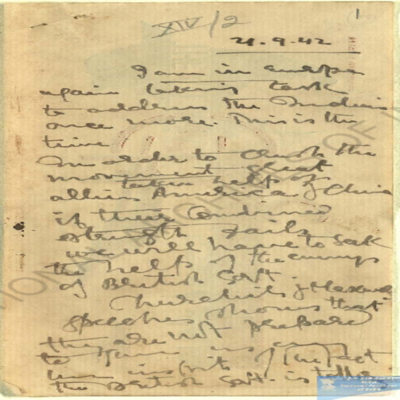 XIV/2
1
21.9.42
I am in Europe
again taking task
to address the Indians
once more. This is the
time
In order to crush the
movement
taken help of
allies America & China
if these combined
strength fails
we will have to seek
the help of the enemys
of British Govt.
Churchill's &
speeches shows that
they are not prepared
to
in spite of the fact
the British Govt. is